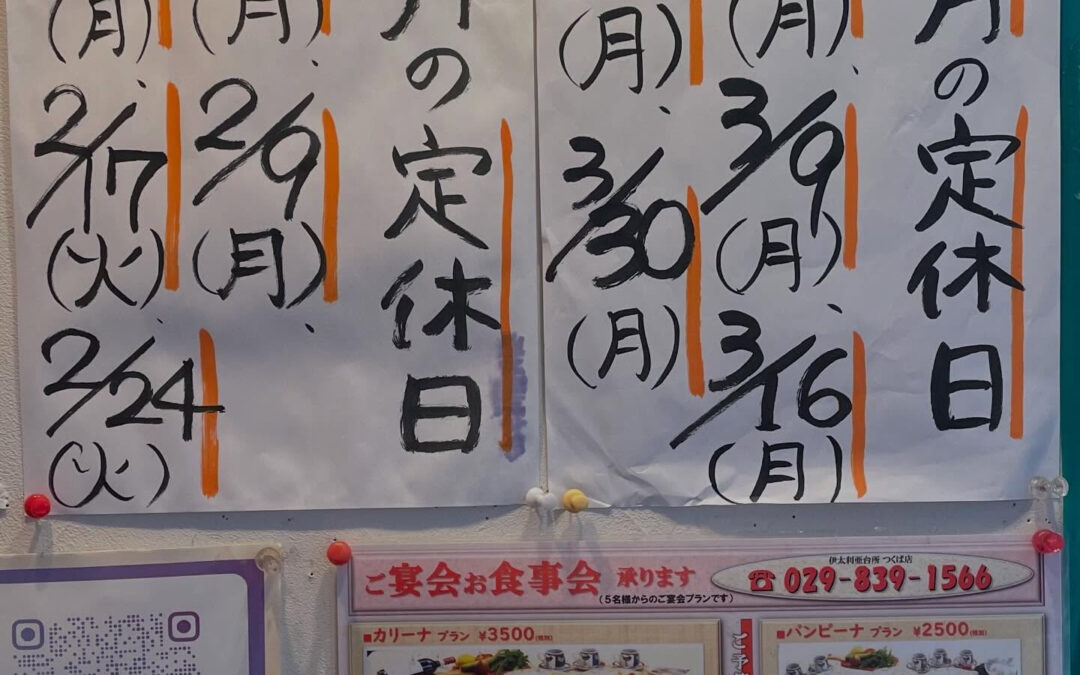 月の定休日
(月)
3/9
(月)
3/16
(月)
(月)
3/30
(月)
の定休日
(月)
2/9
(月)
(月)
2/17
(火)
2/24
(火)
ご宴会お食事会 承ります
(5名様からのご宴会プランです)
伊太利亜台所 つくば店
☎029-839-1566
■カリーナ プラン ¥3500(税別)
■バンビーナ プラン ¥2500(税別)